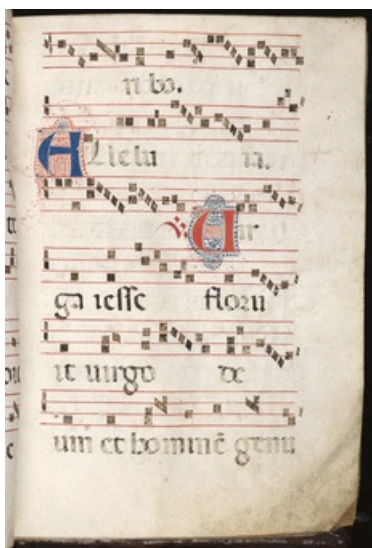 bo.
Allelu ia.
Uir
ga iesse floru
it uirgo de
um et hominē genu